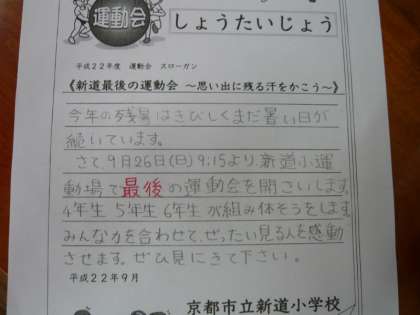 運動会
しょうたいじょう
平成22年度 運動会 スローガン
《新道最後の運動会 ～思い出に残る汗をかこう～》
今年の残暑はきびしくまだ暑い日が
続いています。
さて、9月26日(日)9:15より、新道小運
動場で最後の運動会を開さいします。
4年生 5年生 6年生 が組み体そうをします。
みんな力を合わせて、ぜったい見る人を感動
させます。ぜひ見にきて下さい。
平成22年9月
京都市立新道小学校